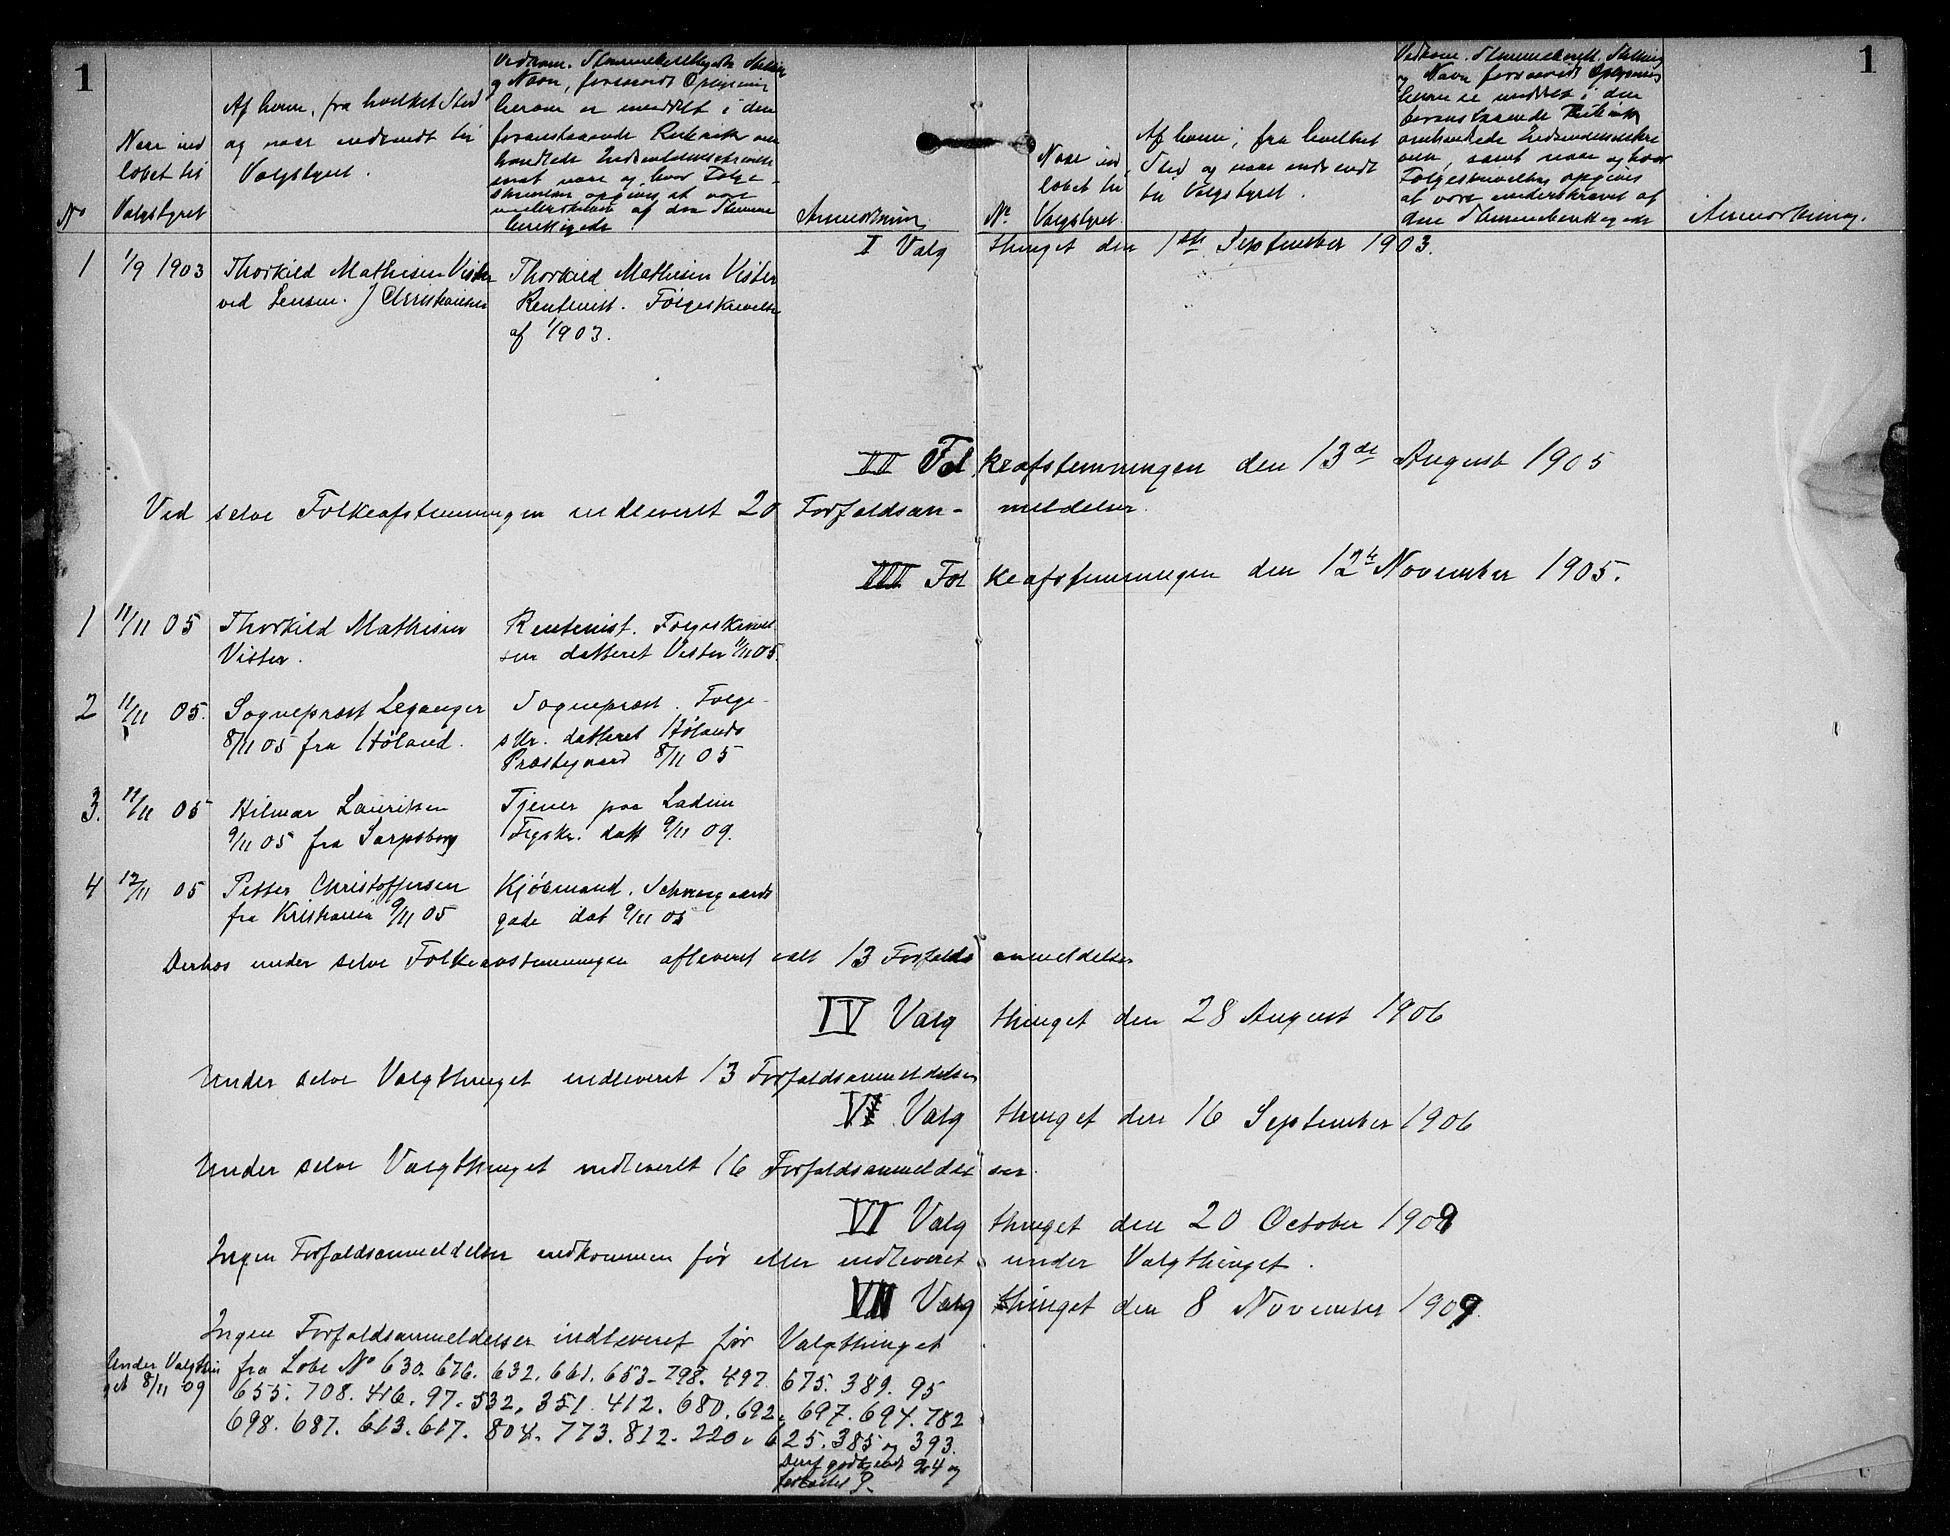 1
1
Naar ind
løbet til
Valgstyret
No
Af hvem, fra hvilket Sted
og naar indsendt til
Valgstyret.
Vedkom. Stemmeberettigedes Stilling
og Navn, forsaavidt Oplysning
herom er meddelt i den
foranstaaende Rubrik om
handlede Indsendelsesskrivelse
samt naar og hvor Følge-
skrivelsen opgives at være
underskrevet af den Stemme
berettigede
Anmærkning
No.
Naar ind
løbet til
Valgstyret.
Af hvem, fra hvilket
Sted og naar indsendt
til Valgstyret.
Vedkom. Stemmeberett. Stilling
og Navn forsaavidt Oplysning
herom er meddelt i den
foranstaaende Rubrik
omhandlede Indsendelsesskri
velse, samt naar og hvor
Følgeskrivelsen opgives
at være underskrevet af
den Stemmeberettigede
Anmærkning.
I Valgthinget den 1ste September 1903.
1 1/9 1903 Thorkild Mathisen Vister Thorkild Mathisen Vister
ved Lensm. J Christiansen Rentenist. Følgeskrivelse
af 1/9 03.
II Folkeafstemningen den 13de August 1905
Ved selve Folkeafstemningen indleveret 20 Forfaldsanmeldelser.
III Folkeafstemningen den 12te November 1905.
1 11/11 05 Thorkild Mathisen Rentenist. Følgeskrivel
Vister. sen datteret Vister 11/11 05.
2 11/11 05. Sogneprest Leganger Sogneprest. Følge-
8/11 05 fra Høland. skr. datteret Hølands
Præstegaard 8/11 05
3. 11/11 05 Hilmar Lauritsen Tjener paa
9/11 05 fra Sarpsborg Følgeskr. datt 9/11 09.
4 12/11 05 Petter Christoffersen Kjøbmand. Schweigaards
fra Kristiania 9/11 05 gade dat 9/11 05
Derhos under selve Folkeavstemningen afleveret ialt 13 Forfaldsanmeldelser
IV Valgthinget den 28 August 1906
Under selve Valgthinget indleveret 13 Forfaldsanmeldelser
V Valgthinget den 16 September 1906
Under selve Valgthinget indleveret 16 Forfaldsanmeldelser.
VI Valgthinget den 20 October 1909
Ingen Forfaldsanmeldelser indkommen før eller indleveret under Valgthinget.
VII Valgthinget den 8 November 1909
Ingen Forfaldsanmeldelser indleveret før Valgthinget
Under Valgthin fra Løbe No 630. 676. 632. 661. 653. 798. 497. 675. 389. 95
get 8/11 09 655. 708. 416. 97. 532. 351. 412. 680. 692. 697. 694. 782
698. 687. 613. 617. 804. 773. 812. 220. 625. 385 og 393.
Deraf godkjendt 24 og
forkastet 9.